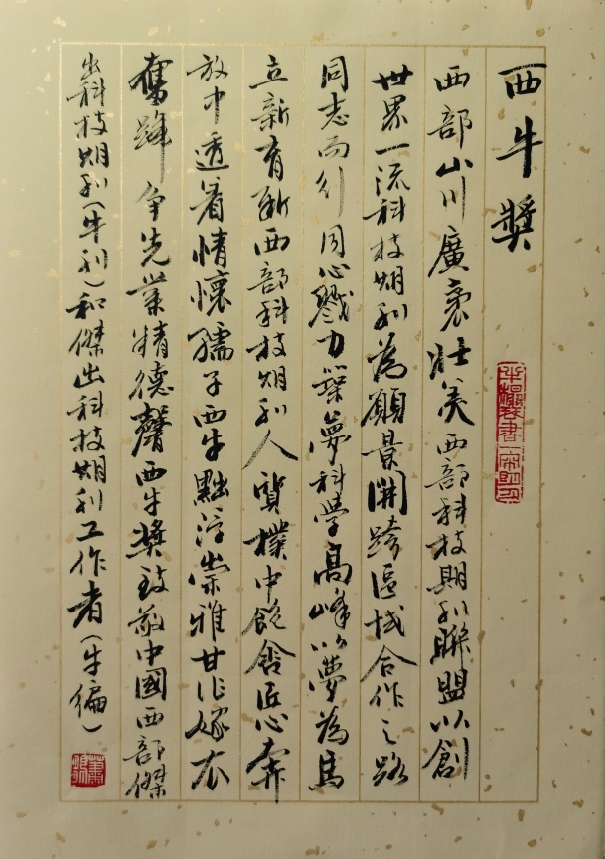 西牛獎
西部山川廣袤壯美西部科技期刊聯盟以創
世界一流科技期刊為願景開跨區域合作之路
同志而行同心戮力築夢科學高峰以夢為馬
立新有新西部科技期刊人質樸中飽含匠心奔
放中透着情懷孺子西牛黜浮崇雅甘作嫁衣
奮蹄爭先業精德馨西牛獎致敬中國西部傑
出科技期刊(牛刊)和傑出科技期刊工作者(牛編)